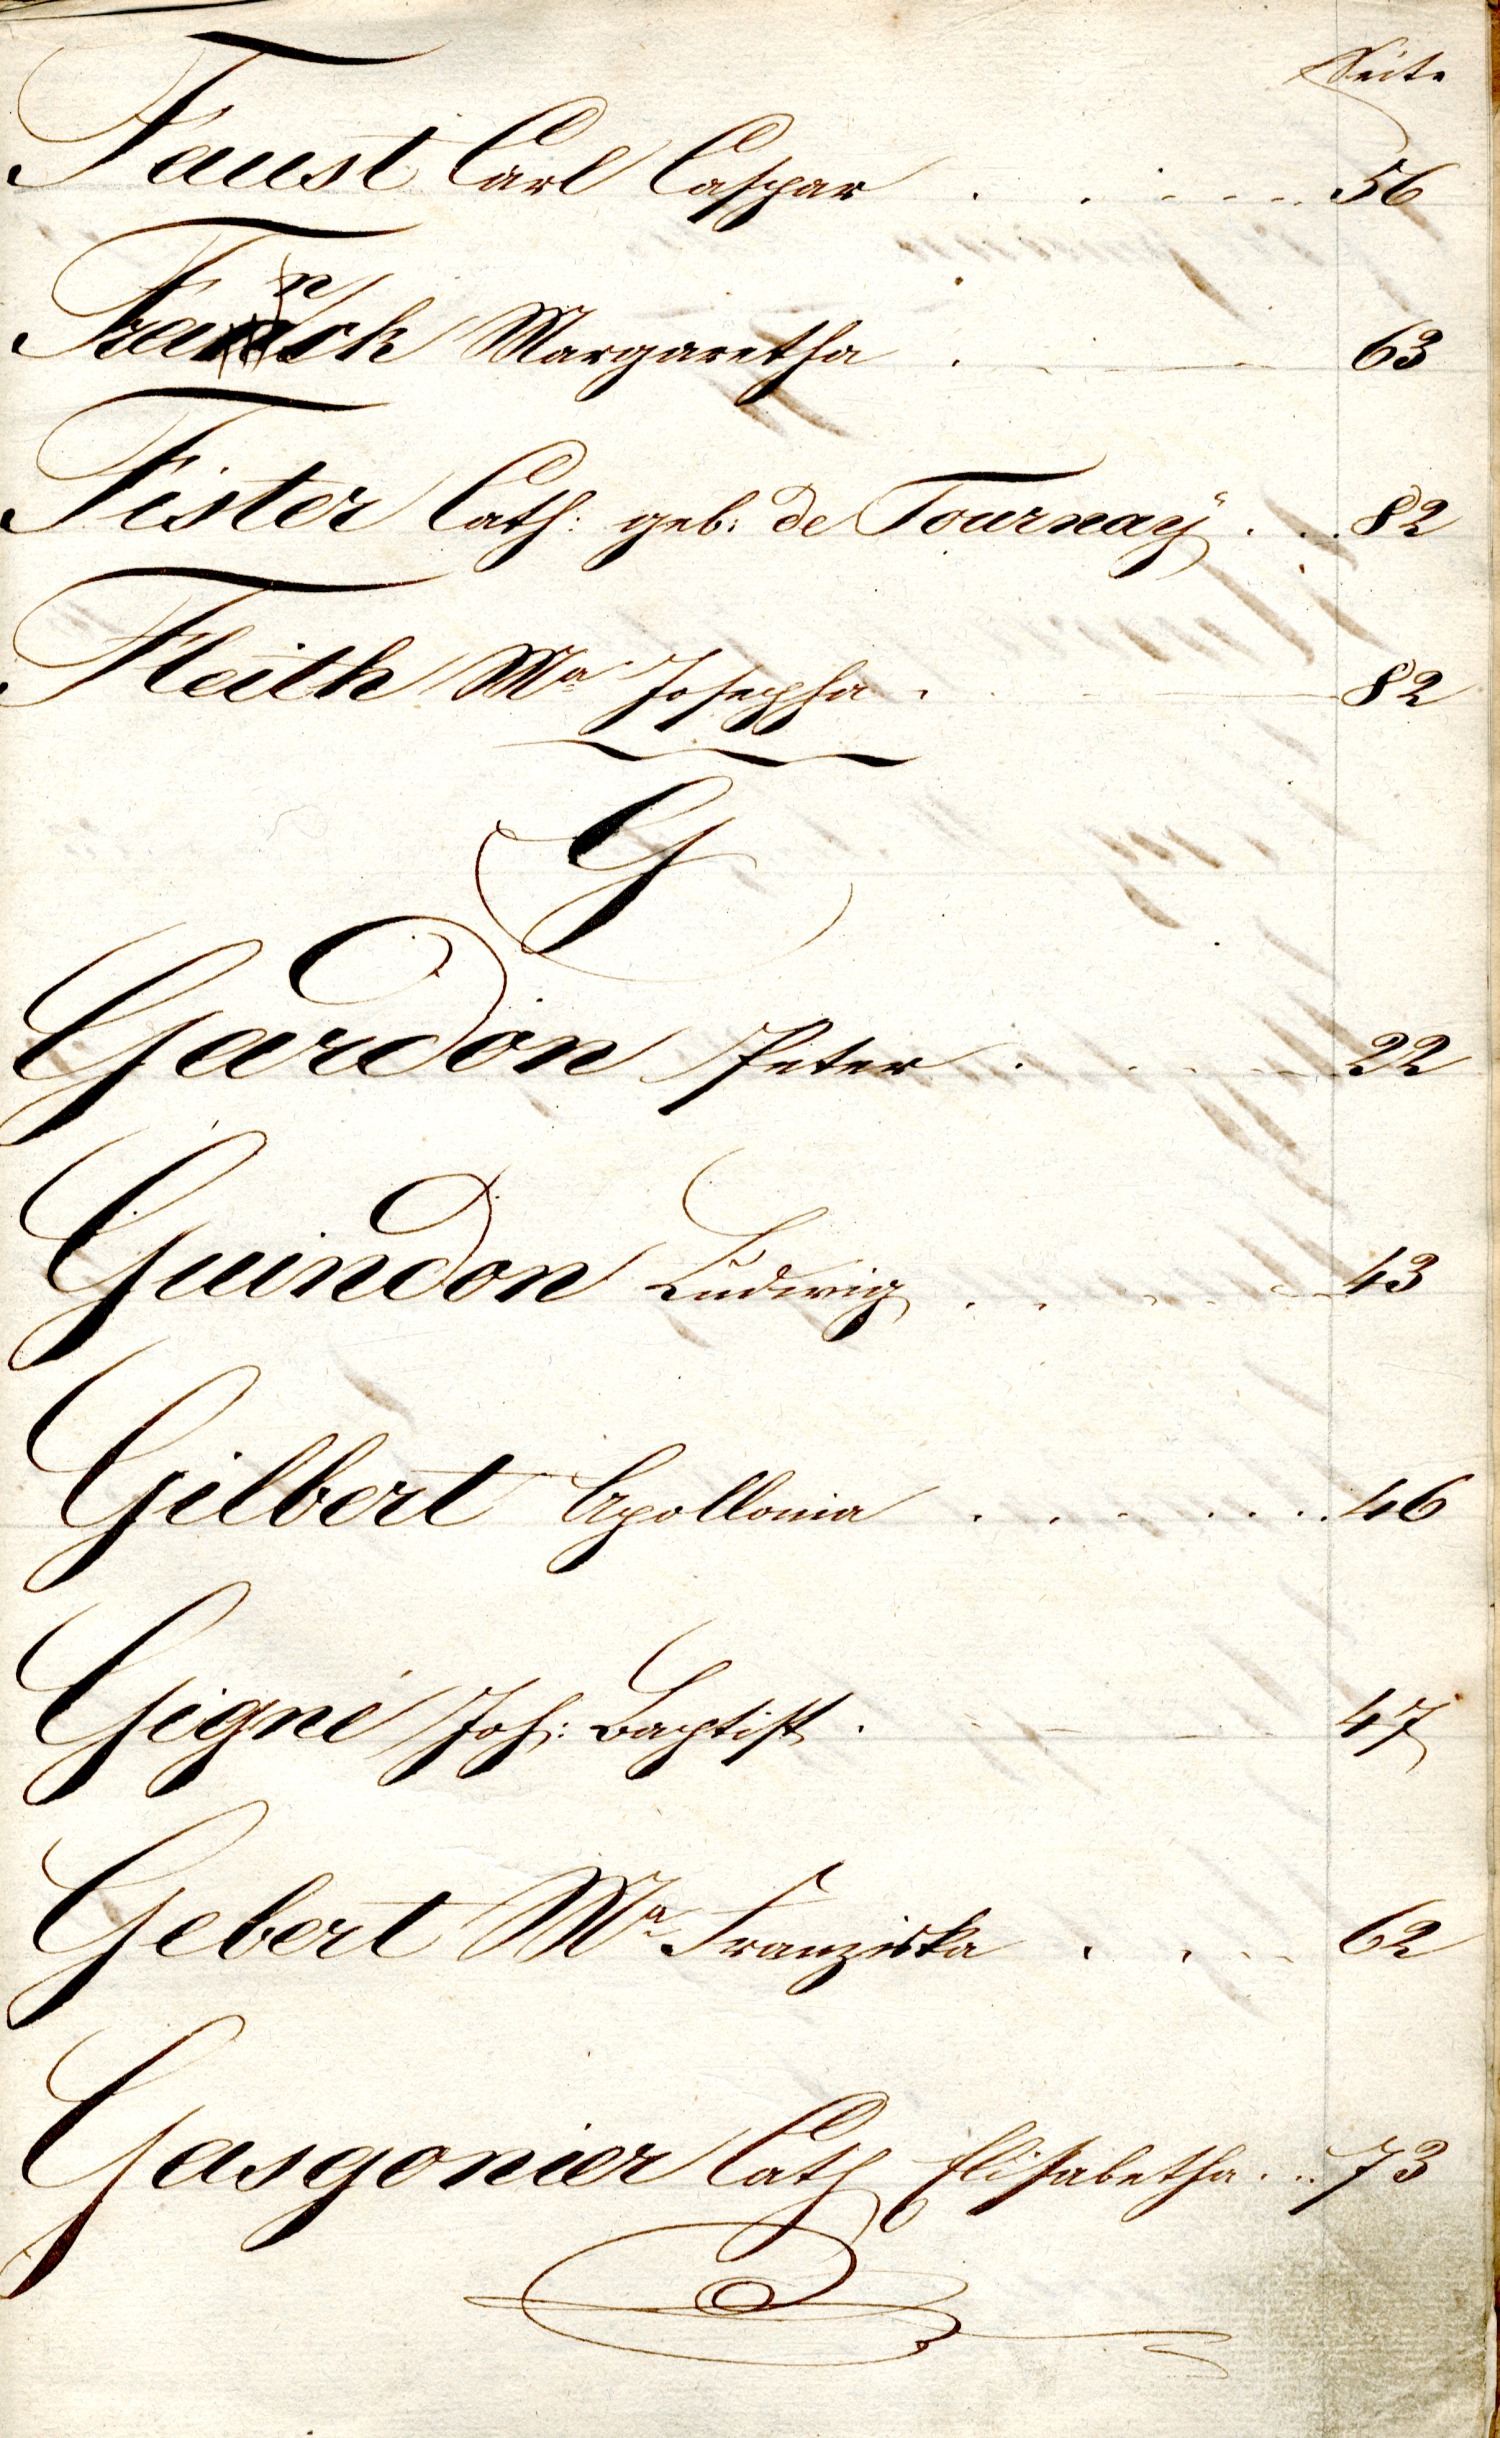 Seite
Faust Carl Caspar . . . . . . 56
Franck Margaretha . . . . 63
Fister Cath: geb: de Tournaÿ . . . 82
Fleith Ma Josepha . . . 82
G
Gardon Peter . . . . . 22
Guindon Ludwig . . . . . 43
Gilbert Apollonia . . . . . . . 46
Gigné Joh: Baptist . . . . 47
Gebert Ma Franziska . . . . 62
Gasgonier Cath Elisabetha . . . 73